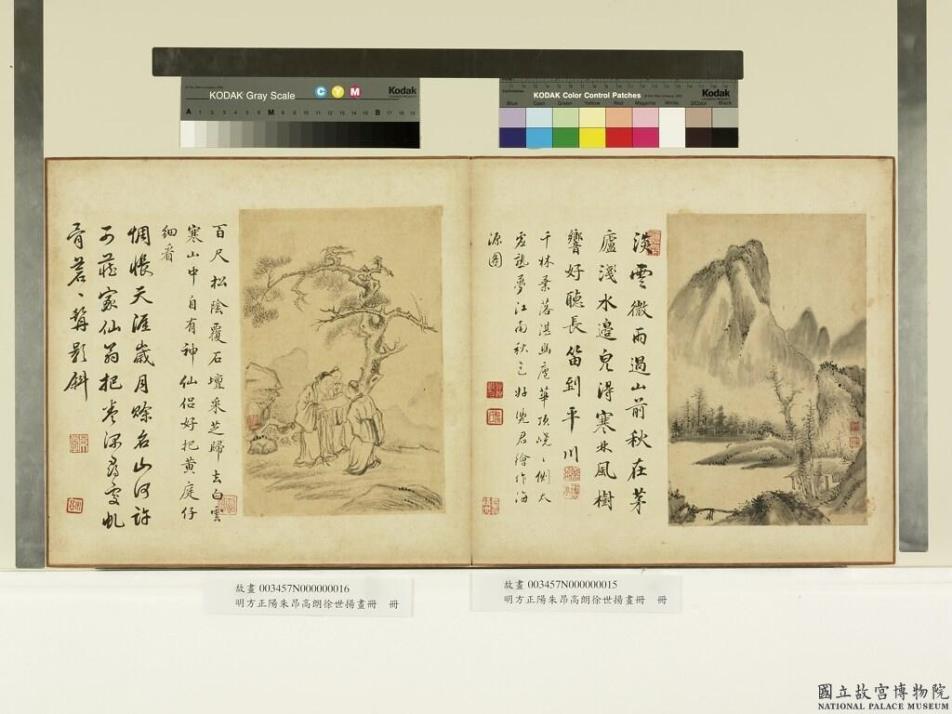 KODAK Gray Scale
C Y M
Kodak
A 1 2 3 4 5 6 M 8 9 10 11 12 13 14 15 B 17 18 19
KODAK Color Control Patches
Kodak
Blue Cyan Green Yellow Red Magenta White 3/Color Black
淡雲微雨過山前秋在茅
廬淺水邊兒得寒林風樹
響好聽長笛到平川
千林葉落湛幽 華頂 太
夢江南秋已好 君繪作海
源圖
百尺松陰覆石壇采芝歸去白雲
寒山中自有神仙侶好把黃庭仔
細看
惆悵天涯歲月賒名山何許
可 家仙翁把卷深 虬
骨蒼〻 影斜
故畫 003457N000000016
明方正陽朱昂高朗徐世揚畫冊 冊
故畫 003457N000000015
明方正陽朱昂高朗徐世揚畫冊 冊
國立故宮博物院
NATIONAL PALACE MUSEUM